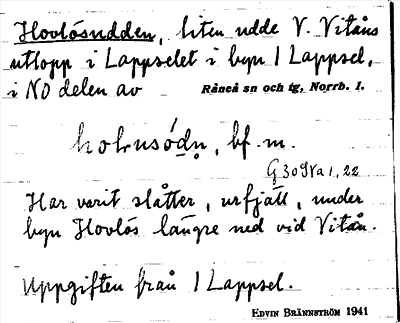 Hovlösudden, liten udde V. Vitåns
utlopp i Lappselet i byn 1 Lappsel,
i NO delen av Råneå sn och tg, Norrb. l.
bf. m.
G 30 9Va 1, 22
Har varit slåtter, urfjäll, under
byn Hovlös längre ned vid Vitån.
Uppgiften från 1 Lappsel.
EDVIN BRÄNNSTRÖM 1941